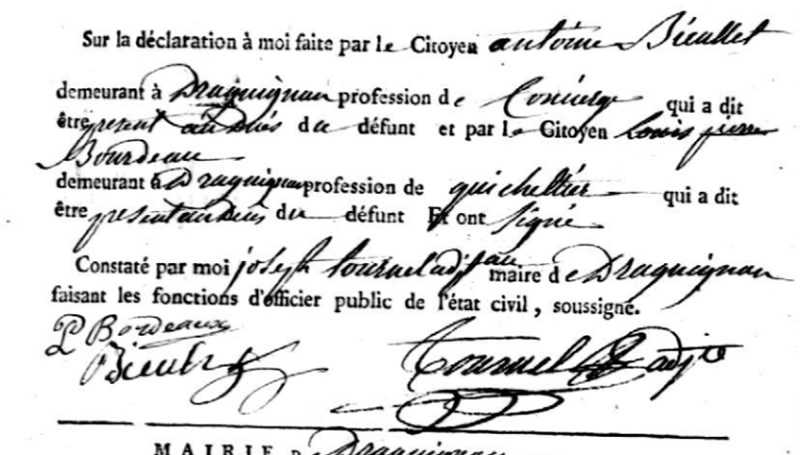 Sur la déclaration à moi faite par le Citoyen antoine Bieullet
demeurant à Draguignan profession de Concierge qui a dit
être present au Décés du défunt et par le Citoyen Louis pierre
Bourdeau
demeurant à Draguignan profession de guichettier qui a dit
être present au Deces du défunt Et ont signé
Constaté par moi joseph tournel adjt au maire de Draguignan
faisant les fonctions d'officier public de l'état civil, soussigné.
P Bordeaux
Tournel adjt
MAIRIE D Draguignan